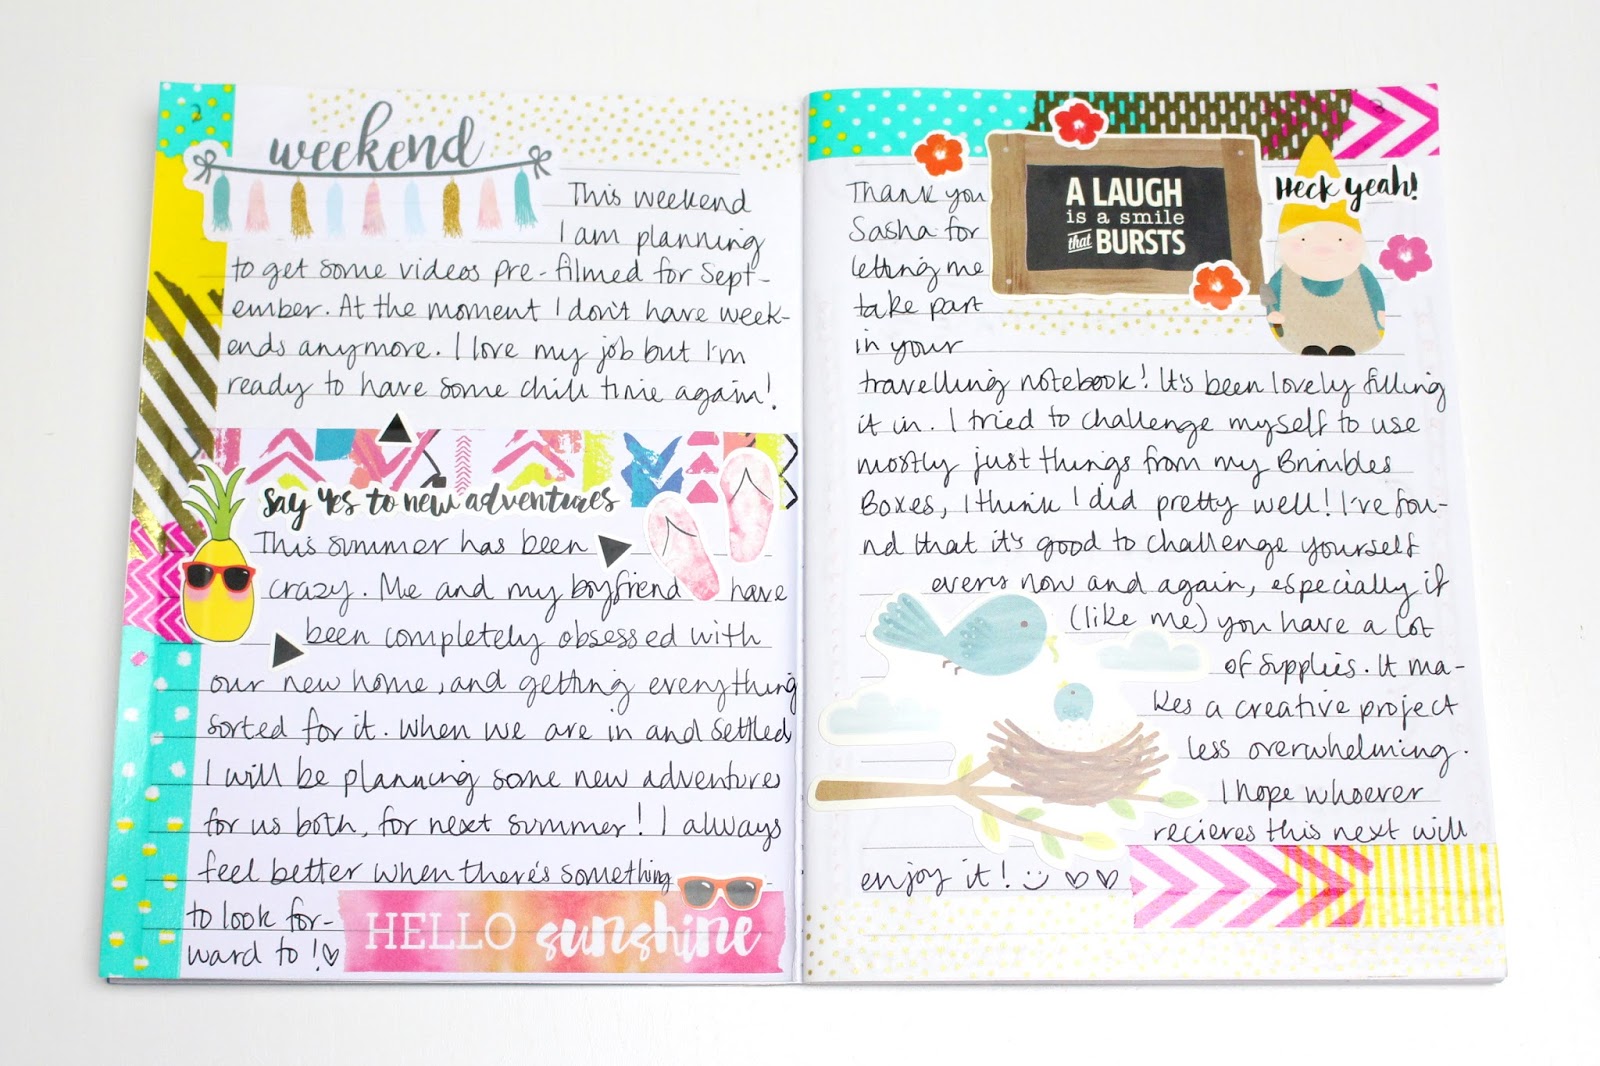 2
weekend
This weekend
I am planning
to get some videos pre-filmed for Sept-
ember. At the moment I don't have week-
ends anymore. I love my job but I'm
ready to have some chill time again!
Say Yes to new adventures
This summer has been
crazy. Me and my boyfriend have
been completely obsessed with
our new home, and getting everything
sorted for it. When we are in and settled
I will be planning some new adventures
for us both, for next summer! I always
feel better when there's something
to look for-
ward to!♡
HELLO sunshine
3
A LAUGH
is a smile
that BURSTS
Heck yeah!
Thank you
Sasha for
letting me
take part
in your
travelling notebook! It's been lovely filling
it in. I tried to challenge myself to use
mostly just things from my Brimbles
Boxes, I think I did pretty well! I've fou-
nd that it's good to challenge yourself
every now and again, especially if
(like me) you have a lot
of supplies. It ma-
kes a creative project
less overwhelming.
I hope whoever
recieves this next will
enjoy it! :) ♡♡